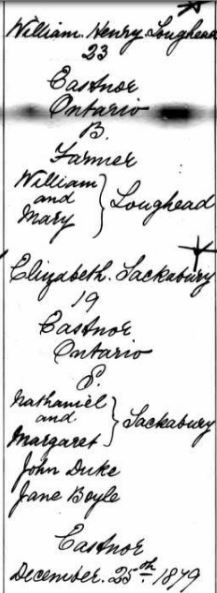 William Henry Loughead
23
Eastnor
Ontario
B.
Farmer
William
and
Mary } Loughead
Elizabeth. Sackabury
19
Eastnor
Ontario
S.
Nathaniel
and
Margaret } Sackabury
John Duke
Jane Boyle
Eastnor
December. 25th 1879